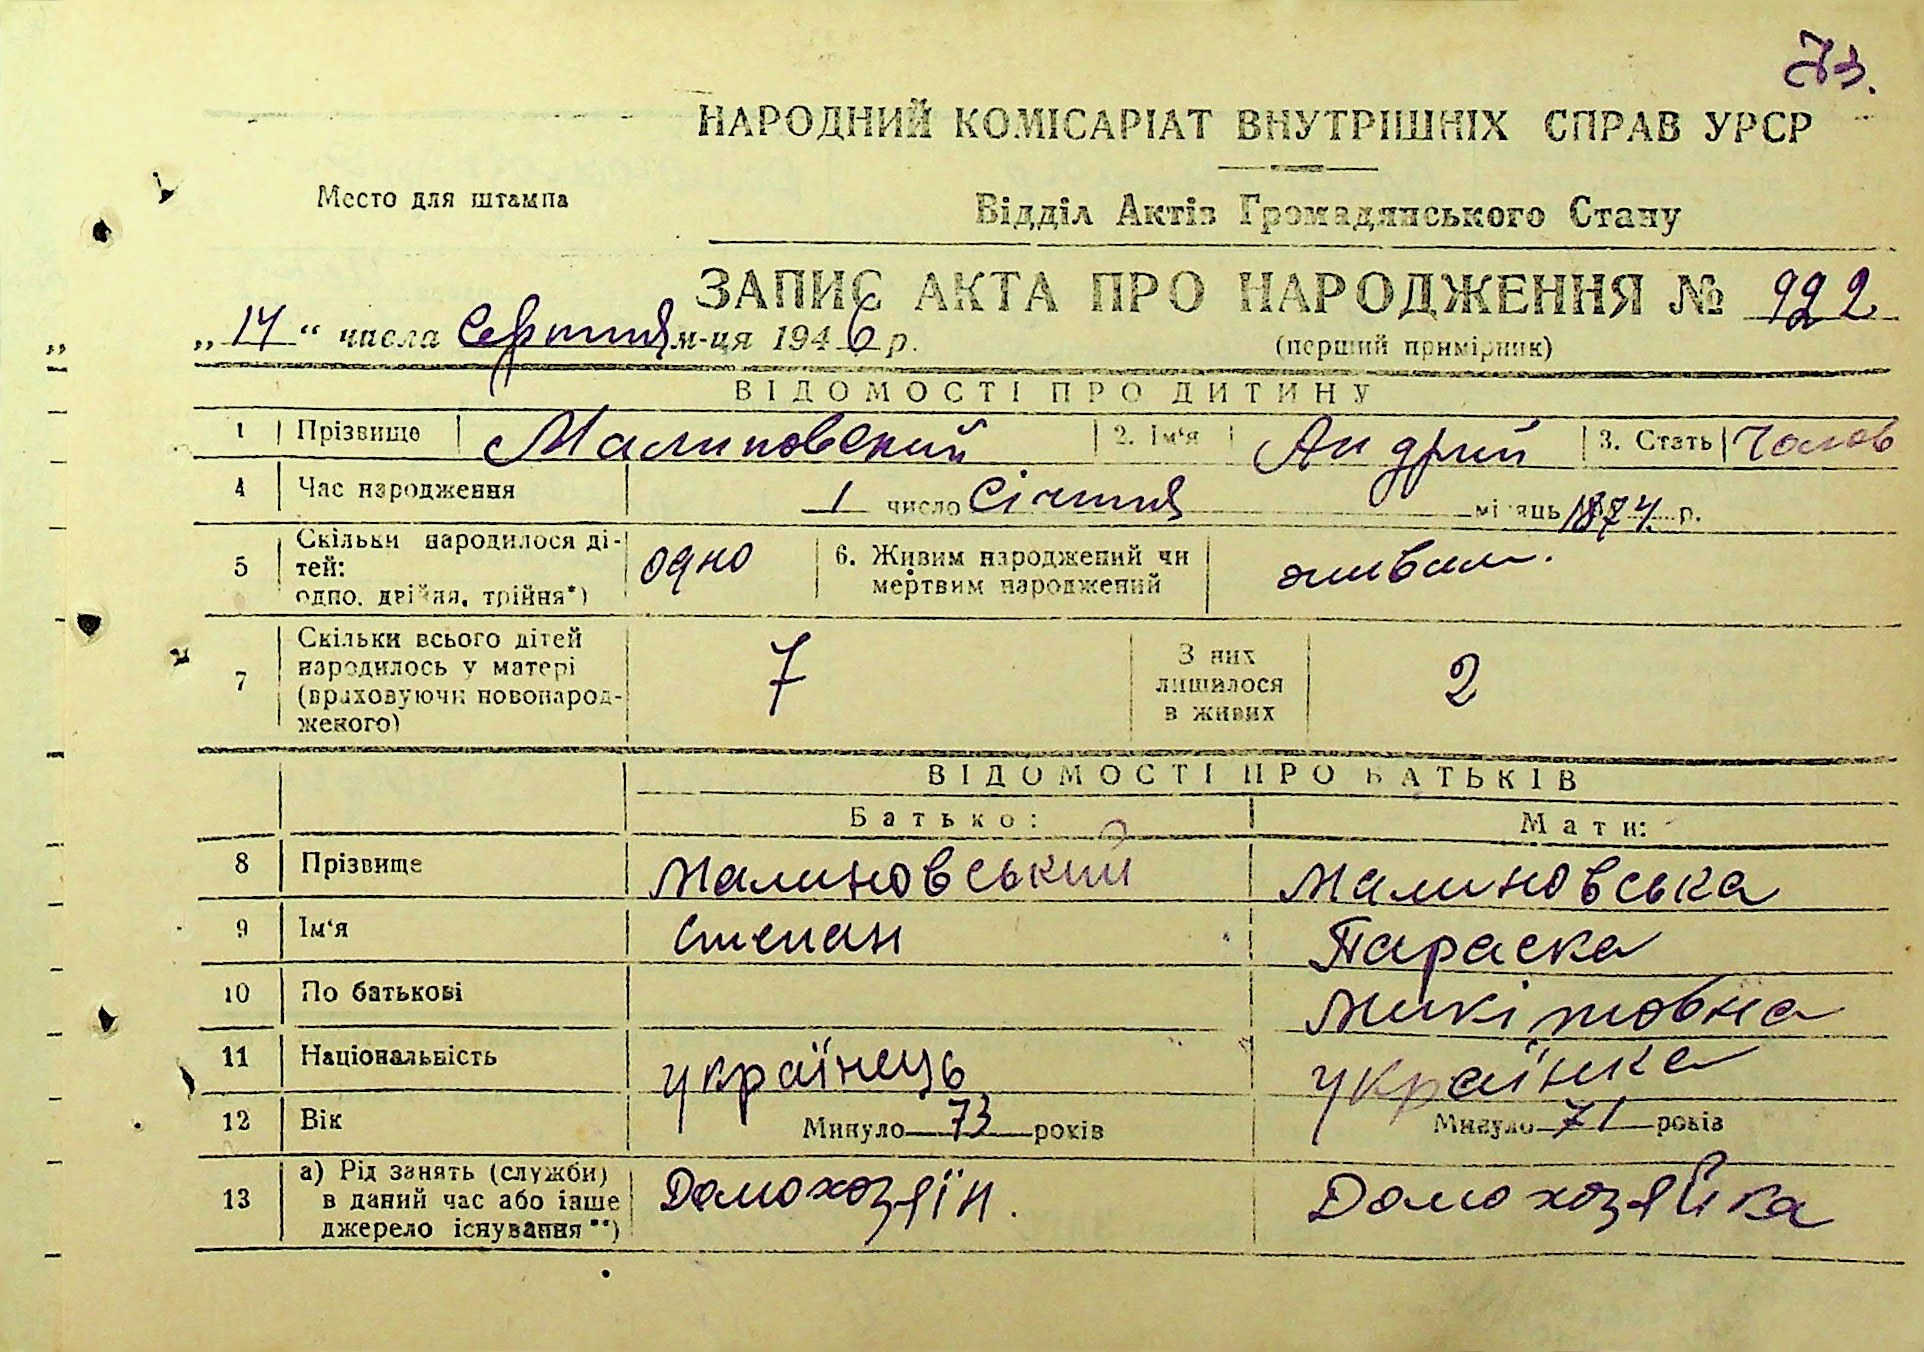 73.
НАРОДНИЙ КОМІСАРІАТ ВНУТРІШНІХ СПРАВ УРСР
Место для штампа
Відділ Актів Громадянського Стану
ЗАПИС АКТА ПРО НАРОДЖЕННЯ № 922
„14“ числа Серпня м-ця 1946 р.
(перший примірник)
ВІДОМОСТІ ПРО ДИТИНУ
1 Прізвище Малиновский 2. Ім‘я Андрій 3. Стать Чолов
4 Час народження 1 число Січня місяць 1874 р.
5 Скільки народилося ді-
тей:
одно, двійня, трійня*) одно 6. Живим народжений чи
мертвим народжений живим.
7 Скільки всього дітей
народилось у матері
(враховуючи новонарод-
женого) 7 З них
лишилося
в живих 2
ВІДОМОСТІ ПРО БАТЬКІВ
Батько: Мати:
8 Прізвище Малиновський Малиновська
9 Ім‘я Степан Параска
10 По батькові Микітовна
11 Національність українець українка
12 Вік Минуло 73 років Минуло 71 років
13 а) Рід занять (служби)
в даний час або інше
джерело існування**) Домохозяїн. Домохозяйка